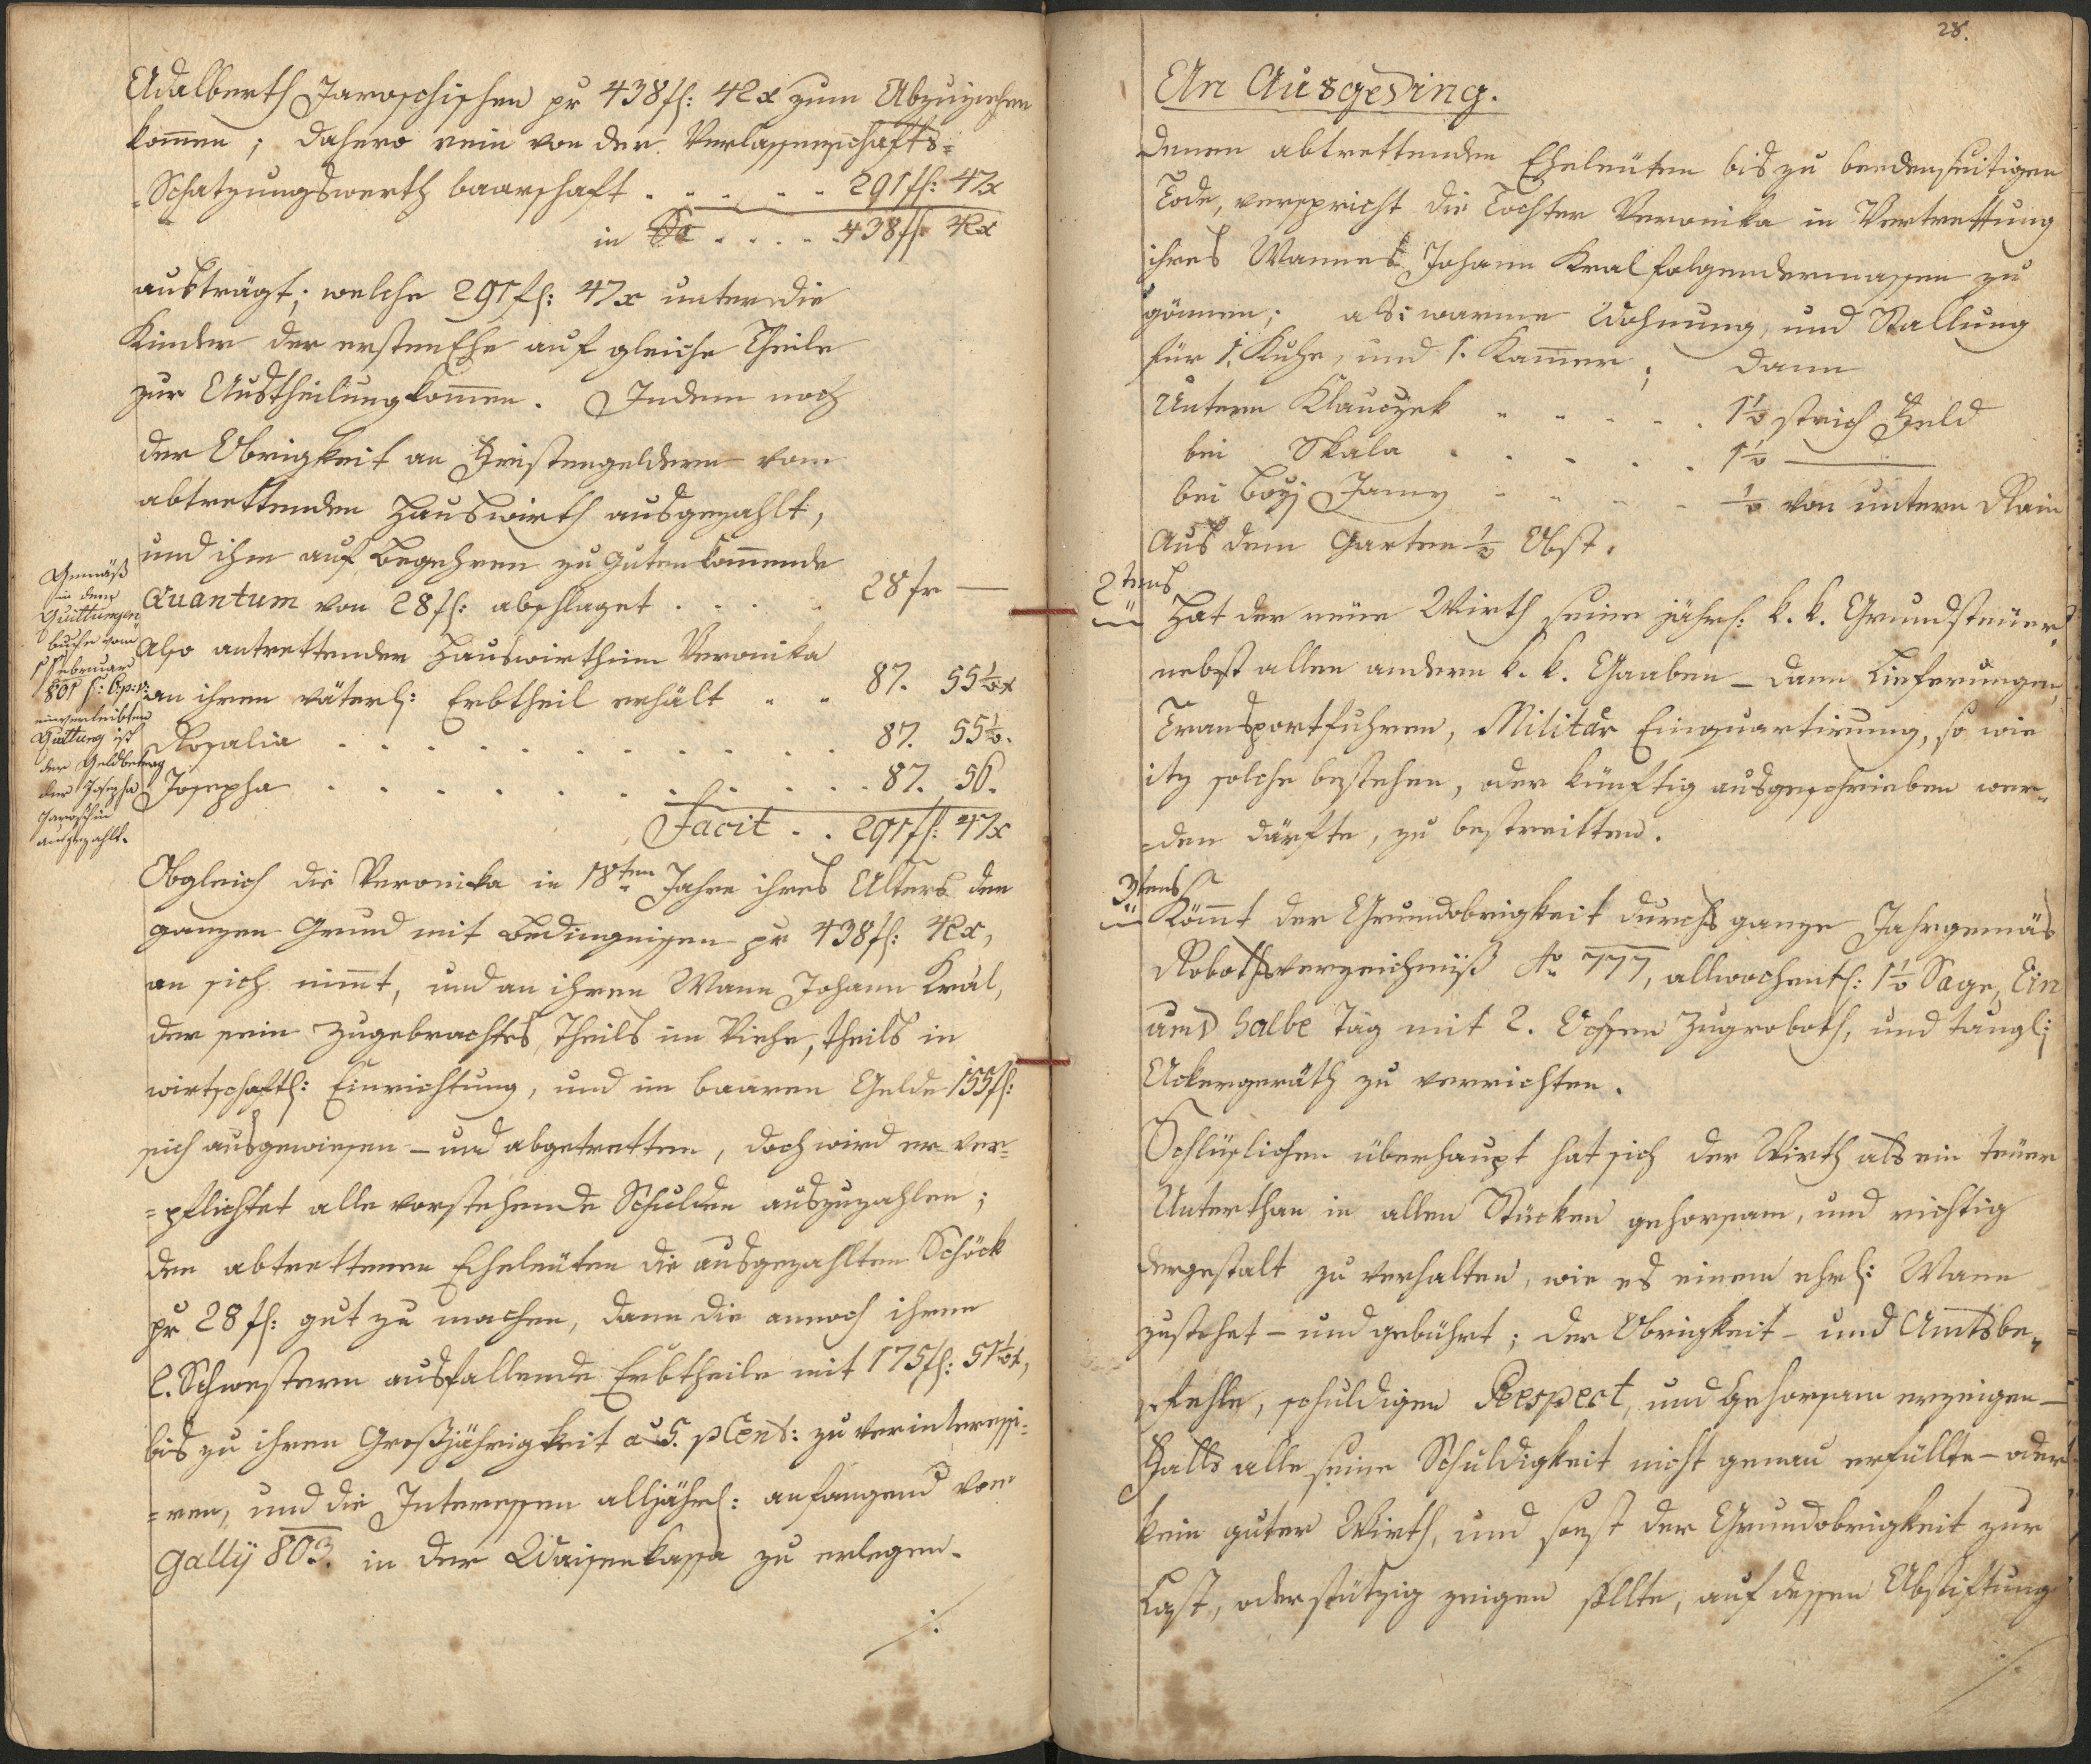 Adalberth Jaroschischen pr 438 fl: 42 x zum Abzuziehen
kom̄en; dahero rein von der Verlassenschafts=
=Schatzungswerth baarschaft . . . . . 291 fl: 47 x
in Sa . . . . 438 fl: 42 x
austrägt; welche 291 fl: 47 x unter die
Kinder der ersten Ehe auf gleiche Theile
zur Austheilung kom̄en. Indem noch
der Obrigkeit an Fristengeldern vom
abtrettenden Hauswirth ausgezahlt,
und ihm auf Begehren zu Guten kom̄ende
Quantum von 28 fl: abschlaget . . . . 28 fr —
Also antrettender Hauswirthin Veronika
an ihren väterl: Erbtheil erhält . . 87. 55½ x
Rosalia . . . . . . . . . . 87. 55½.
Josepha . . . . . . . . . . 87. 56.
Facit . . 291 fl: 47 x
Gemäß
in dem
Quittungen
buche vom
1 Februar
801
einverleibten
Quittung ist
der Geldbetrag
der Josepha
Jaroschin
ausgezahlt.
Obgleich die Veronika in 18ten Jahre ihres Alters den
ganzen Grund mit Bedingnissen pr 438 fl: 42 x,
an sich nim̄t, und an ihren Mann Johann Král,
der sein Zugebrachtes, theils im Viehe, theils in
wirtschaftl: Einrichtung, und im baaren Gelde 155 fl:
sich ausgewiesen – und abgetretten, doch wird er ver=
=pflichtet alle vorstehende Schulden auszuzahlen;
den abtrettenen Eheleuten die ausgezahlten Schöck
pr 28 fl: gut zu machen, dann die annoch ihren
2. Schwestern ausfallende Erbtheile mit 175 fl: 51½ x,
bis zu ihren Großjährigkeit a 5. pCent: zu verinteressi=
=ren, und die Interessen alljährl: anfangend von
Gallÿ 803. in der Waisenkassa zu erlegen.
./.
28.
An Ausgeding.
Denen abtrettenden Eheleüten bis zu beedenseitigen
Tode, verspricht die Tochter Veronika in Vertrettung
ihres Mannes Johann Kral folgendermassen zu
gönnen; als: warme Wohnung, und Stallung
für 1. Kuhe, und 1. Kam̄er; dann
Untern Klauczek . . . . . 1½ strich Feld
bei Skala . . . . . 1½ ———
bei Bozj Jamy . . . . ½ von untern Rain
Aus dem Garten ½ Obst.
2tens
Hat der neüe Wirth seine jährl: k. k. Grundsteüer,
nebst allen andern k. k. Gaaben – dann Lieferungen,
Transportfuhren, Militär Einquartirung, so wie
itz solche bestehen, oder künftig ausgeschrieben wer=
=den därfte, zu bestreitten.
3tens
Köm̄t der Grundobrigkeit durchs ganze Jahr gemäs
Robothsverzeichniß Ao 777, allwochentl: 1½ Tage, Ein
und halbe Tag mit 2. Ochsen Zugroboth, und taugl:
Ackergeräth zu verrichten.
Schlüslichen überhaupt hat sich der Wirth als ein treüer
Unterthan in allen Stücken gehorsam, und richtig
dergestalt zu verhalten, wie es einem ehrl: Mann
zustehet – und gebührt; der Obrigkeit – und Amtsbe=
=fehle, schuldigen Respect, und Gehorsam erzeigen –
Falls alle seine Schuldigkeit nicht genau erfüllte – oder
kein guter Wirth, und sonst der Grundobrigkeit zur
Last, oder stützig zeigen sollte, auf dessen Abstiftung
./.